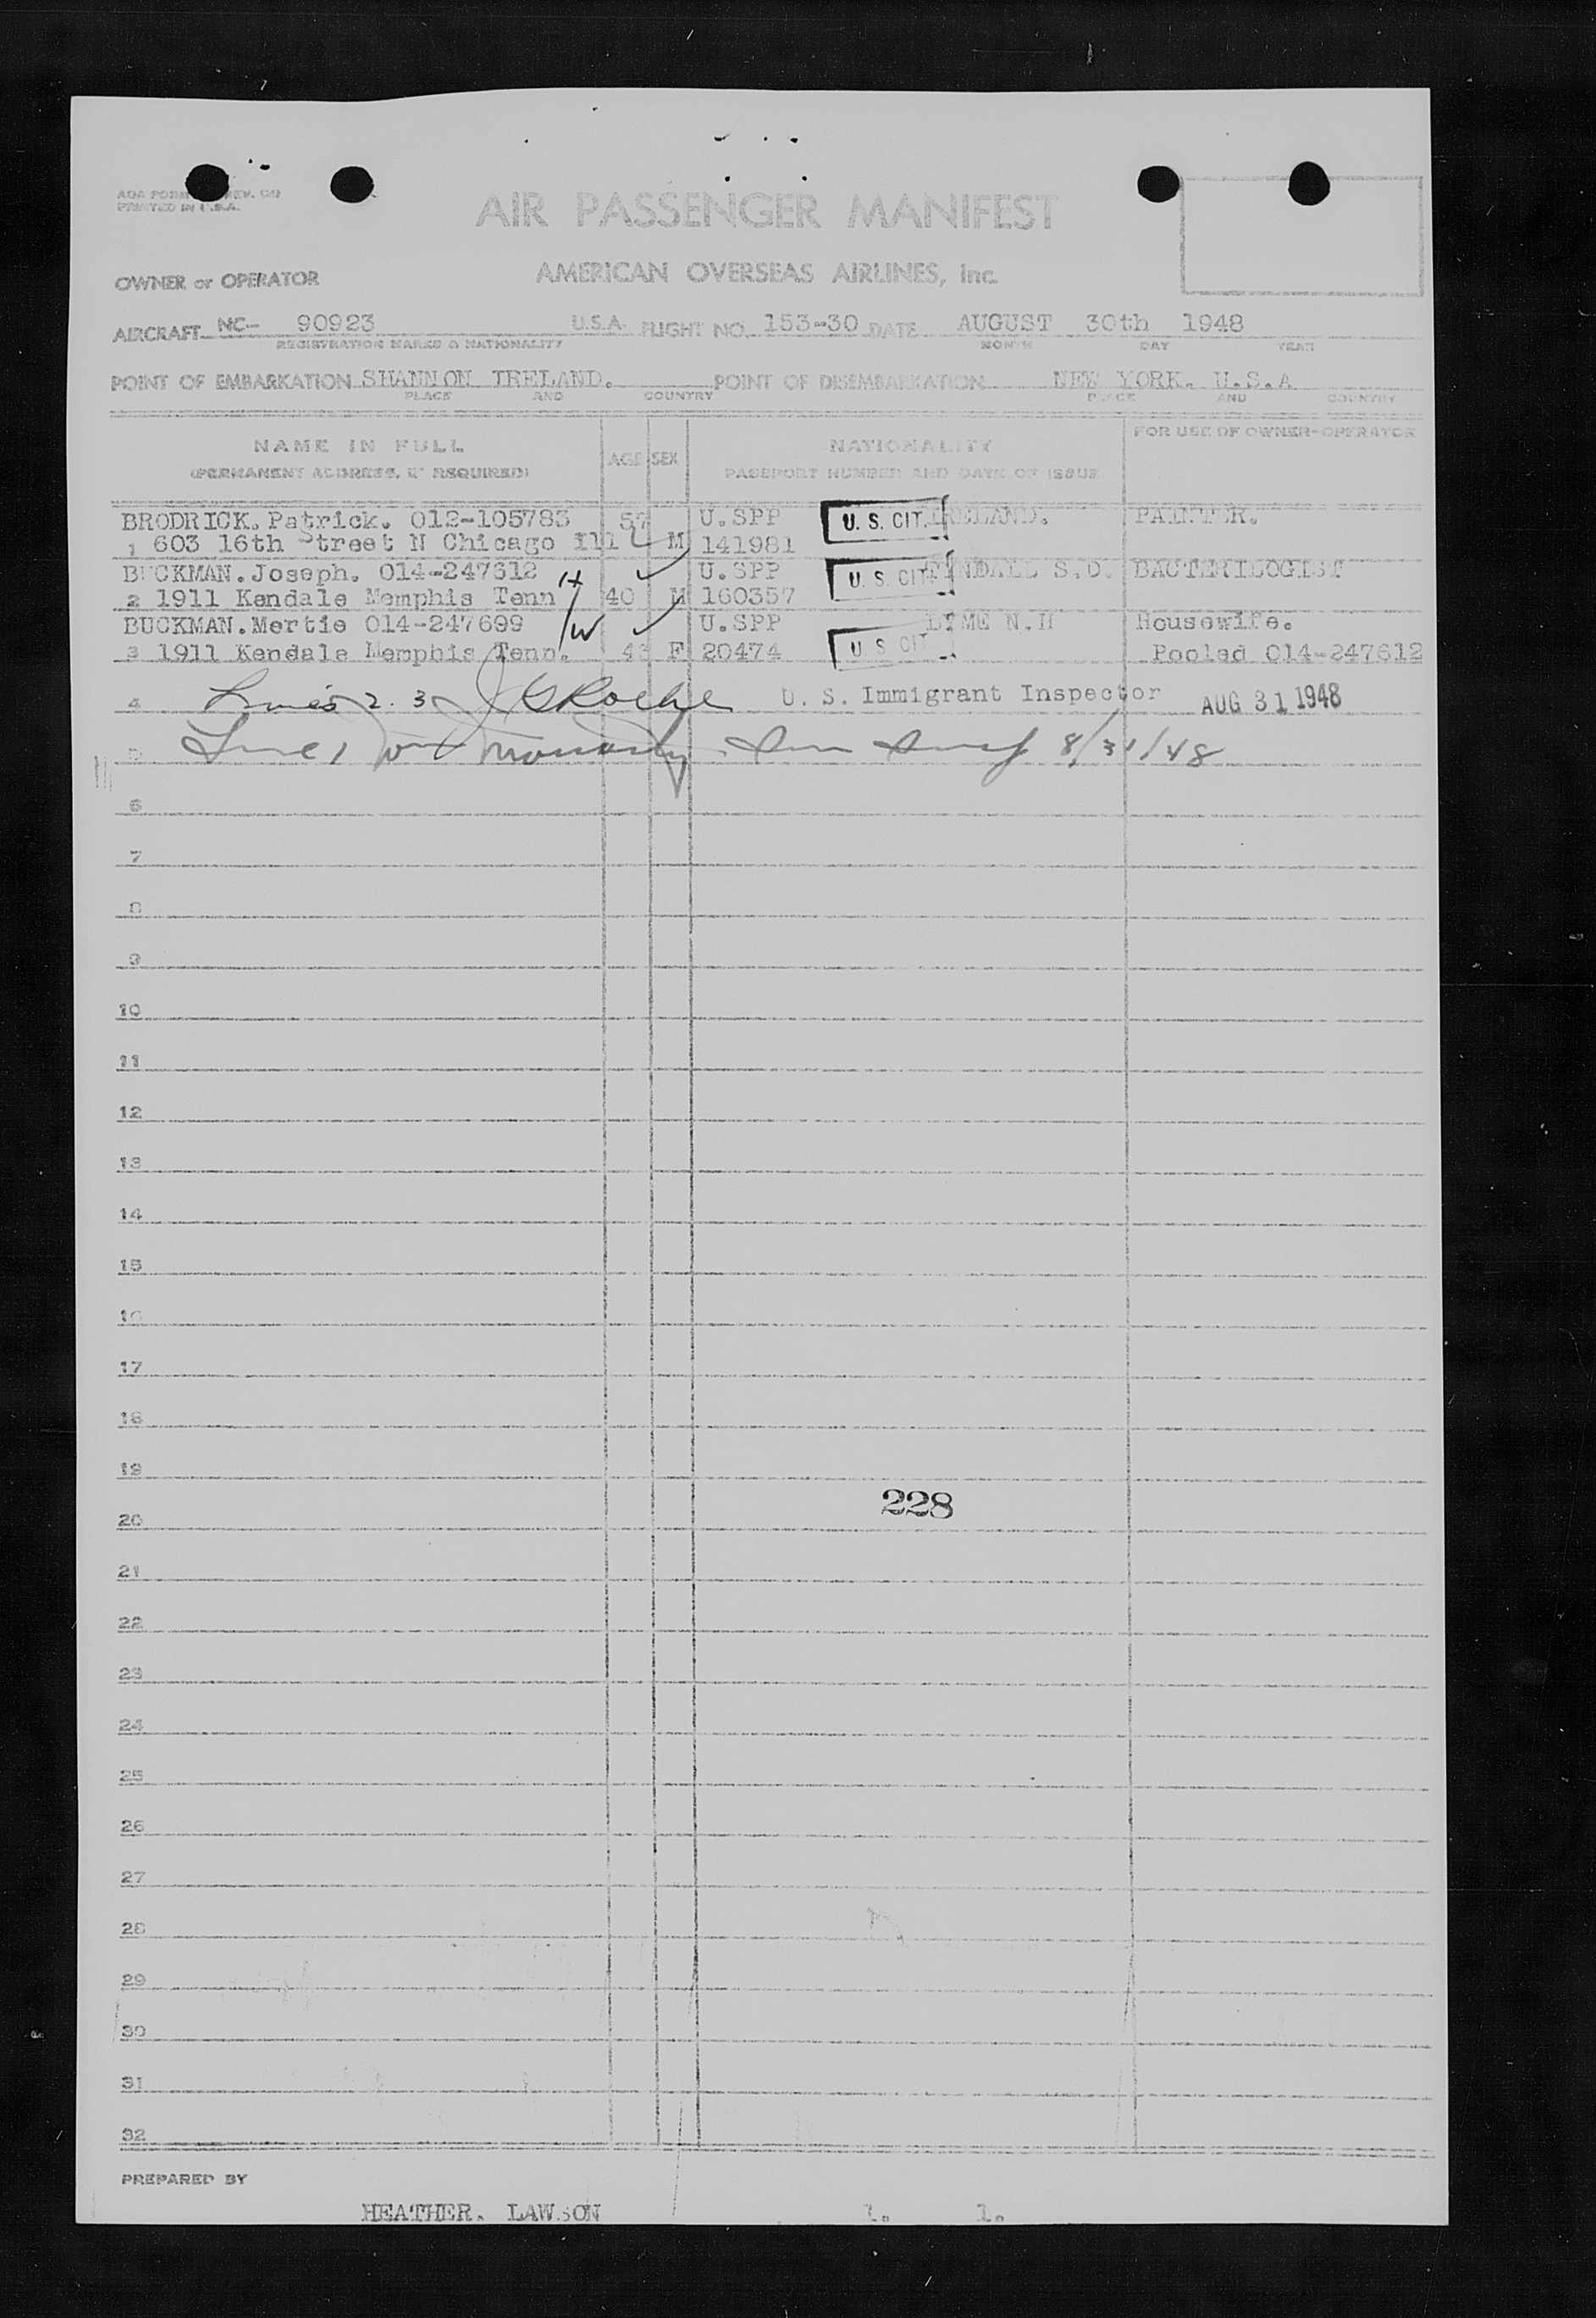 AOA FORM REV.
PRINTED IN U.S.A.
AIR PASSENGER MANIFEST
OWNER or OPERATOR AMERICAN OVERSEAS AIRLINES, Inc.
AIRCRAFT NC- 90923 U.S.A. FLIGHT NO. 153-30 DATE AUGUST 30th 1948
REGISTRATION MARKS & NATIONALITY MONTH DAY YEAR
POINT OF EMBARKATION SHANNON IRELAND. POINT OF DISEMBARKATION NEW YORK. U.S.A
PLACE AND COUNTRY PLACE AND COUNTRY
NAME IN FULL AGE SEX NATIONALITY FOR USE OF OWNER-OPERATOR
(PERMANENT ADDRESS, IF REQUIRED) PASSPORT NUMBER AND DATE OF ISSUE
BRODRICK. Patrick. 012-105783 57 U.SPP U. S. CIT. IRELAND. PAINTER.
1 603 16th Street N Chicago Ill M 141981
BUCKMAN. Joseph. 014-247612 H U.SPP U. S. CIT. S.D. BACTERILOGIST
2 1911 Kendale Memphis Tenn 40 M 160357
BUCKMAN. Mertie 014-247699 W U.SPP LYME N.H Housewife.
3 1911 Kendale Memphis Tenn. 43 F 20474 U. S. CIT. Pooled 014-247612
4 Lines 2. 3 Roche U. S. Immigrant Inspector AUG 31 1948
5 Line 1 8/31/48
6
7
8
9
10
11
12
13
14
15
16
17
18
19
228
20
21
22
23
24
25
26
27
28
29
30
31
32
PREPARED BY
HEATHER. LAWSON 1. 1.